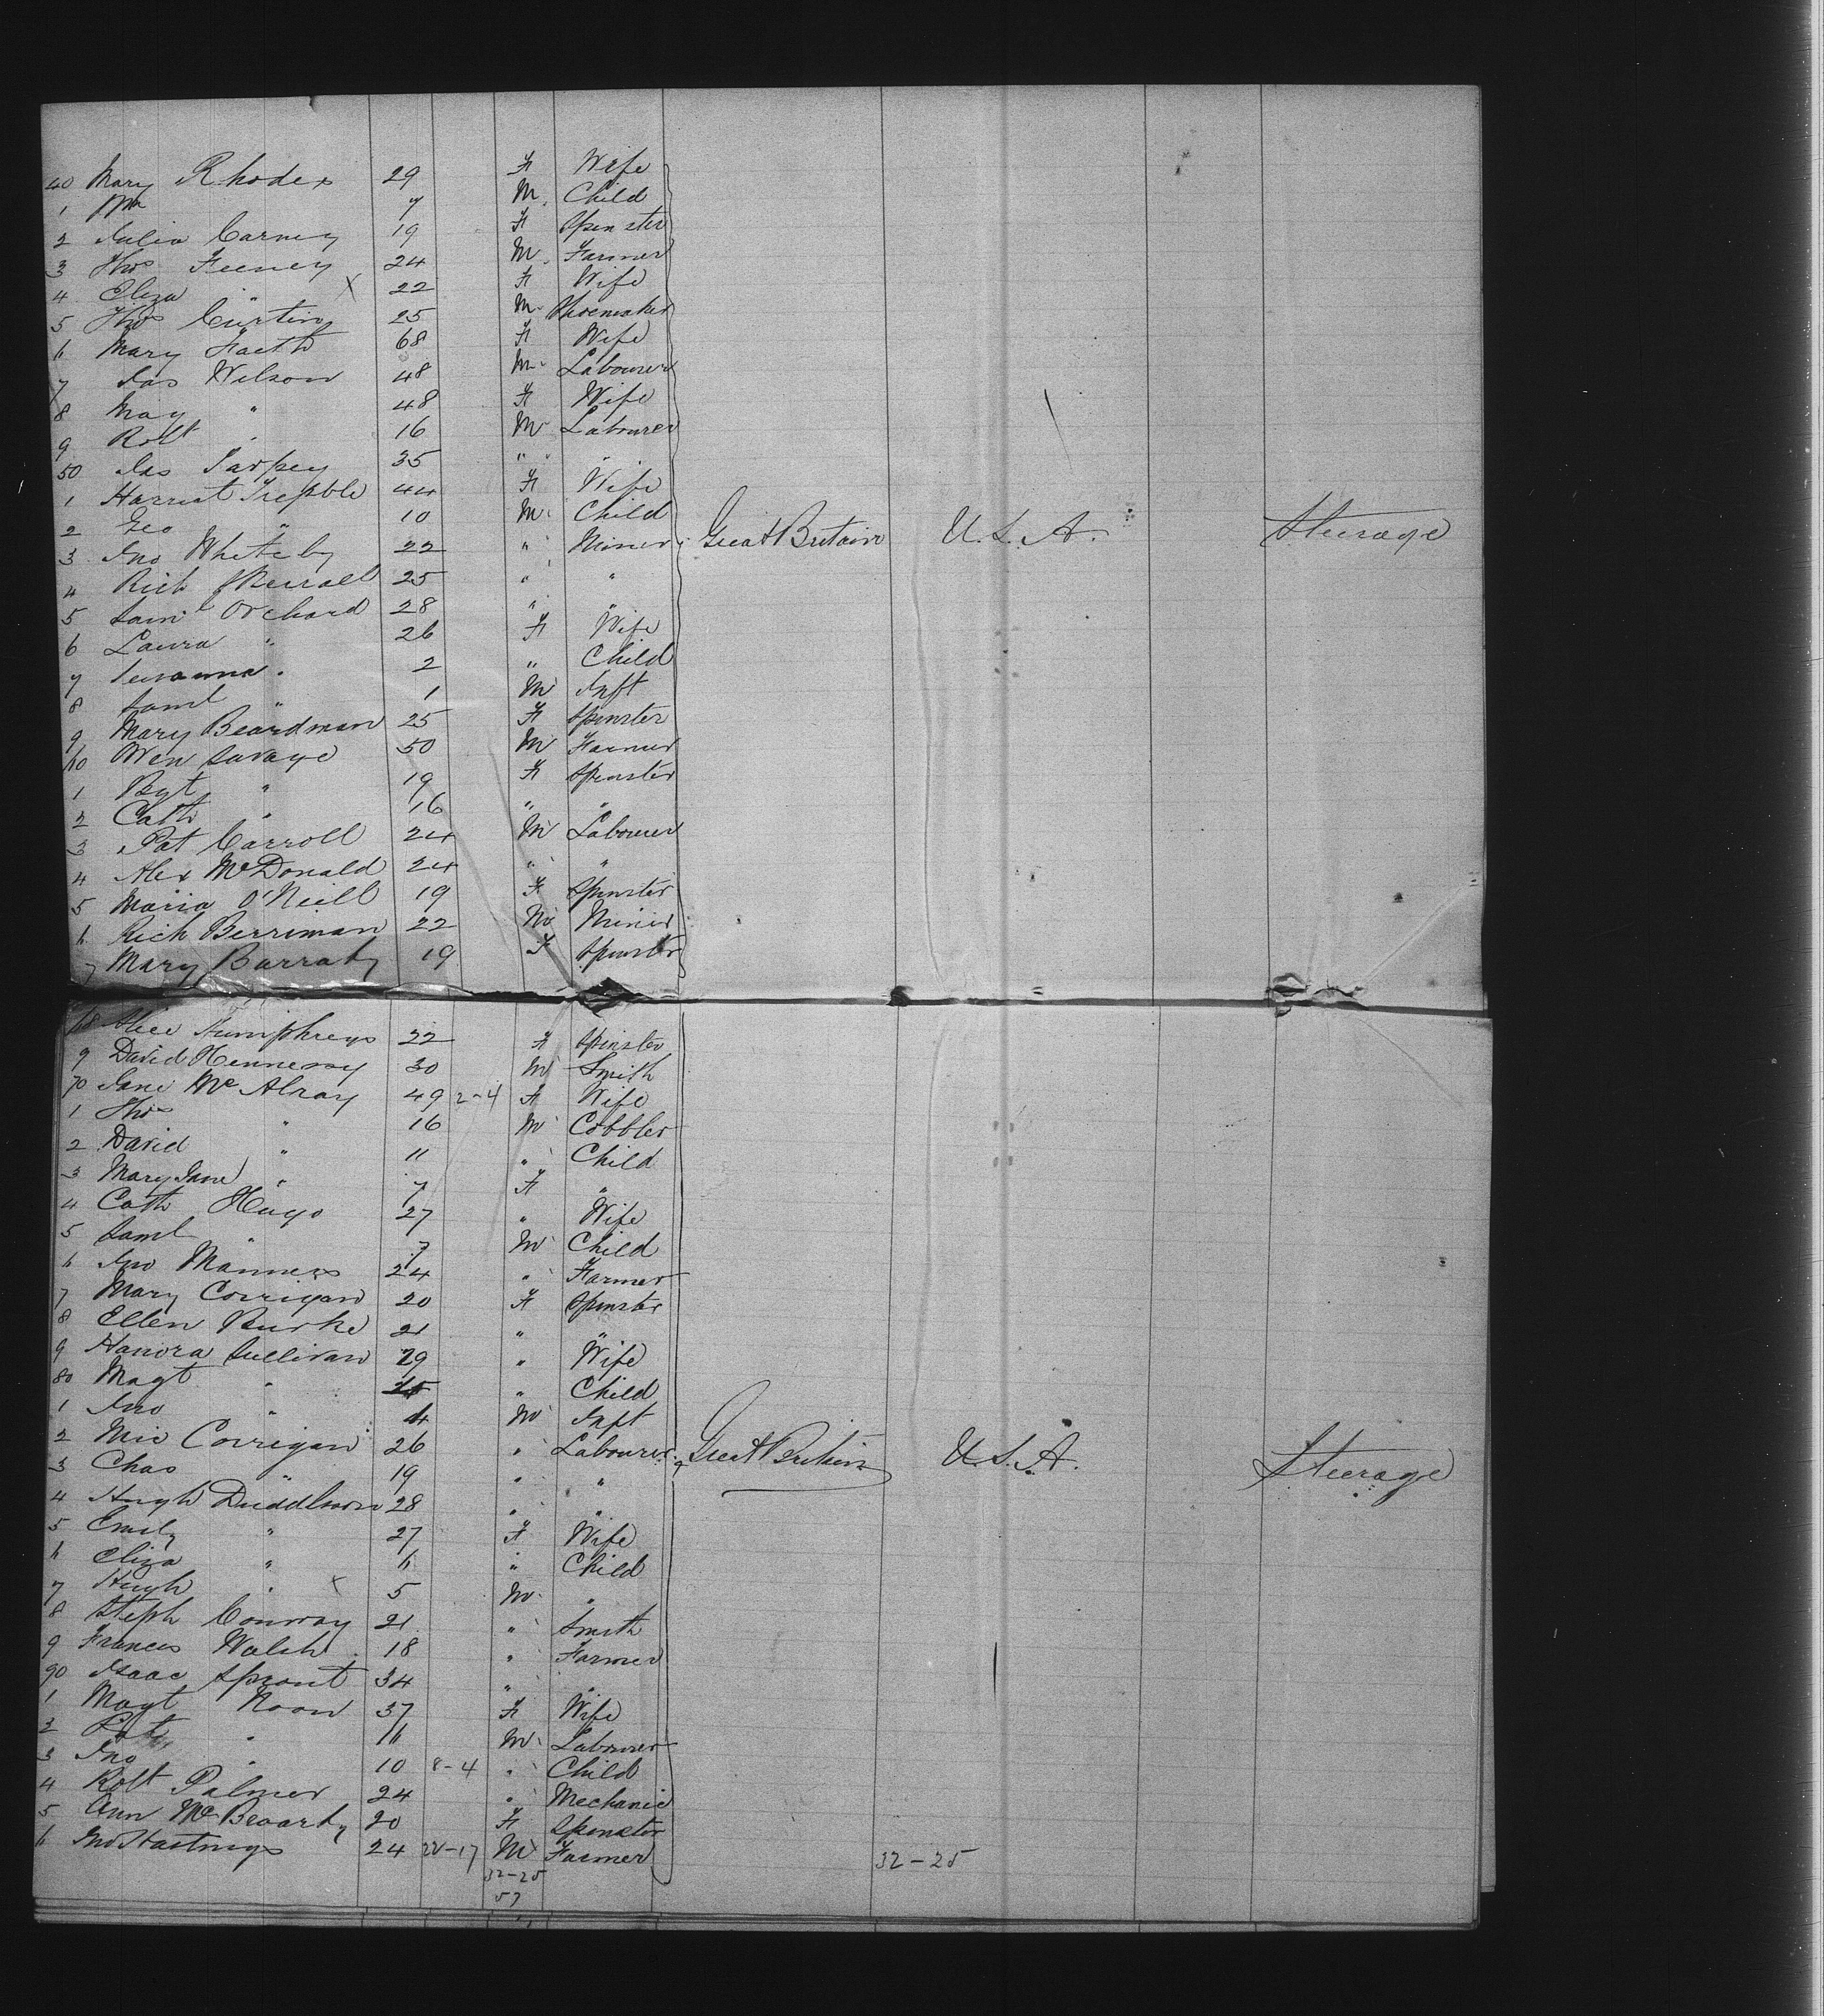 40 Mary Rhodes 29 F Wife
1 Wm 7 M. Child
2 Julia Carney 19 F Spinster
3 Thos Feeney 24 M. Farmer
4 Eliza " X 22 F Wife
5 Thos Curtin 25 M. Shoemaker
6 Mary Faeth 68 F Wife
7 Jas Wilson 48 M. Labourer
8 May " 48 F Wife
9 Robt " 16 M Labourer
50 Jas Tarpey 35 " "
1 Harriet 44 F Wife
2 Geo " 10 M. Child
3 Jno Whiteby 22 " Miner Great Britain U.S.A. Steerage
4 Rich 25 " "
5 Saml Orchard 28 " "
6 Laura " 26 F Wife
7 Susanna " 2 " Child
8 Saml " 1 M Inft
9 Mary Beardman 25 F Spinster
60 Owen Savage 50 M Farmer
1 Bgt " 19 F Spinster
2 Cath " 16 " "
3 Pat Carroll 24 M Labourer
4 Alex McDonald 24 " "
5 Maria O'Neill 19 F Spinster
6 Rich Berriman 22 M Miner
7 Mary Barraty 19 F Spinster
68 Alice Humphreys 22 F Spinster
9 David Hennessy 30 M Smith
70 Jane McAlray 49 2-4 F Wife
1 Thos " 16 M Cobbler
2 David " 11 " Child
3 Mary Jane " 7 F "
4 Cath Hugo 27 " Wife
5 Saml " 7 M Child
6 Jno Manness 24 " Farmer
7 Mary Corrigan 20 F Spinster
8 Ellen Burke 21 " "
9 Hanora Sullivan 29 " Wife
80 Magt " " Child
1 Jno " M Inft
2 Mic Corrigan 26 " Labourer Great Britain U.S.A. Steerage
3 Chas " 19 " "
4 Hugh Duddleson 28 " "
5 Emily " 27 F Wife
6 Eliza " 6 " Child
7 Hugh " X 5 M "
8 Steph Conway 21 " Smith
9 Frances Walsh 18 " Farmer
90 Isaac Sprout 34 " "
1 Magt Noon 37 F Wife
2 " M. Labourer
3 Jno " 10 8-4 " Child
4 Robt Palmer 24 " Mechanic
5 Ann McBrearty 20 F Spinster
6 Jno Hastings 24 22-17 M Farmer
32-25 32-25
57